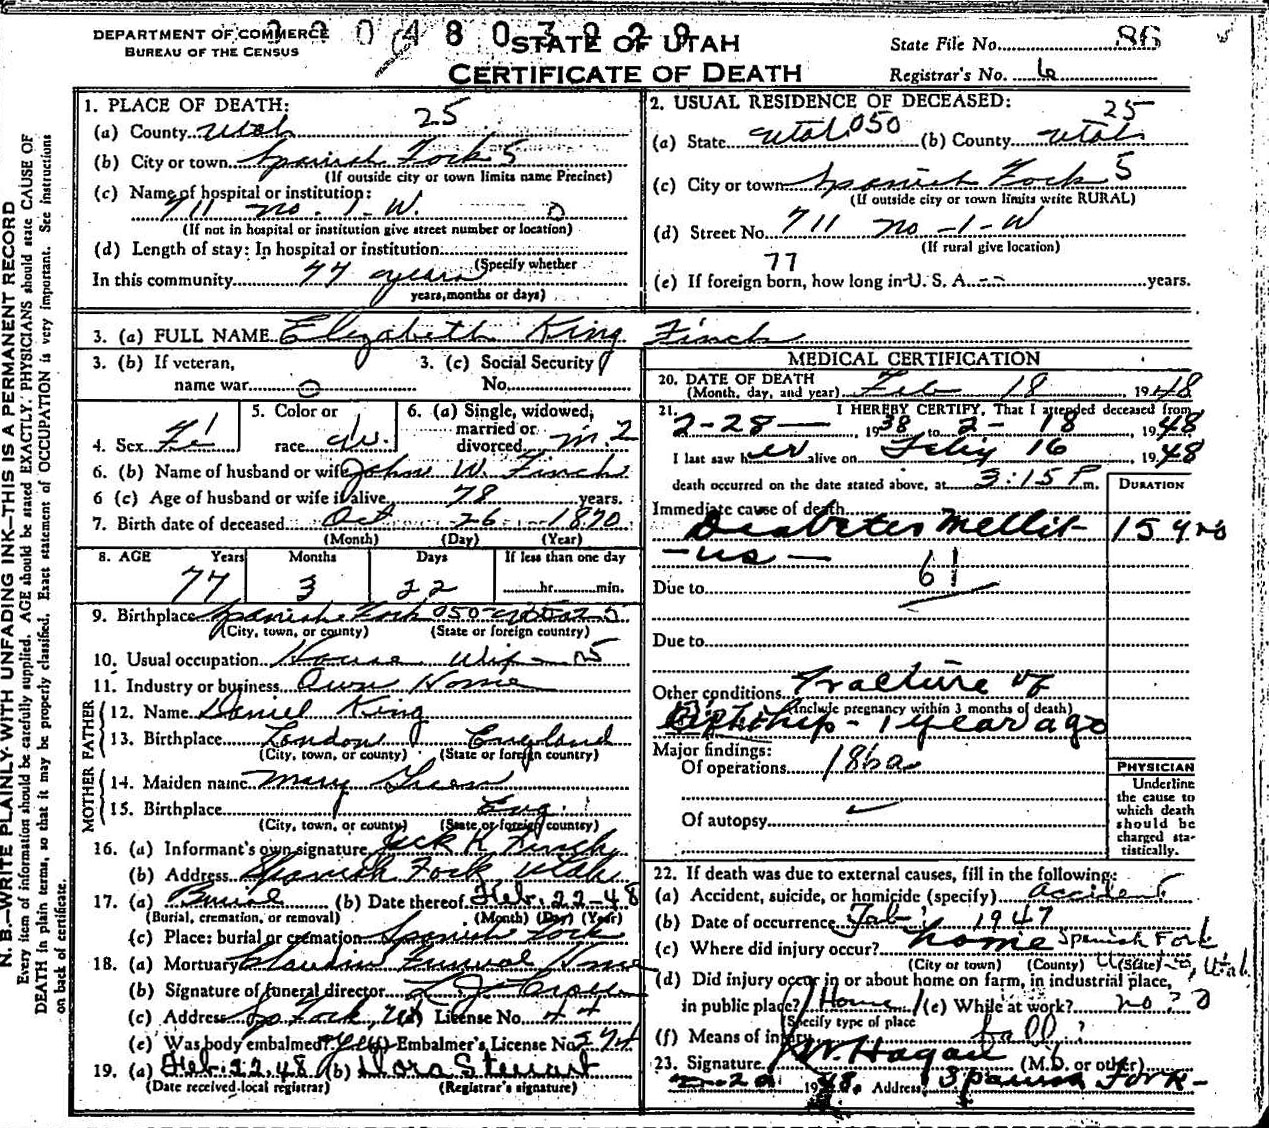 DEPARTMENT OF COMMERCE
BUREAU OF THE CENSUS
STATE OF UTAH
CERTIFICATE OF DEATH
State File No. 86
Registrar's No. 6
N. B.—WRITE PLAINLY WITH UNFADING INK—THIS IS A PERMANENT RECORD
Every item of information should be carefully supplied. AGE should be stated EXACTLY. PHYSICIANS should state CAUSE OF
DEATH in plain terms, so that it may be properly classified. Exact statement of OCCUPATION is very important. See instructions
on back of certificate.
1. PLACE OF DEATH:
25
(a) County Utah
(b) City or town Spanish Fork 5
(If outside city or town limits name Precinct)
(c) Name of hospital or institution:
711 No. 1-W. 0
(If not in hospital or institution give street number or location)
(d) Length of stay: In hospital or institution
(Specify whether
In this community 77 years
years, months or days)
2. USUAL RESIDENCE OF DECEASED:
25
(a) State Utah 050 (b) County Utah
(c) City or town Spanish Fork 5
(If outside city or town limits write RURAL)
(d) Street No. 711 No-1-W
(If rural give location)
77
(e) If foreign born, how long in U. S. A. -- years.
3. (a) FULL NAME Elizabeth King Finch
3. (b) If veteran,
name war 0
3. (c) Social Security
No.
4. Sex Fe 1
5. Color or
race W.
6. (a) Single, widowed,
married or
divorced M 2
6. (b) Name of husband or wife John W. Finch
6 (c) Age of husband or wife if alive 78 years.
7. Birth date of deceased Oct 26 1870
(Month) (Day) (Year)
8. AGE Years Months Days If less than one day
77 3 22 hr. min.
9. Birthplace Spanish Fork 050 Utah 25
(City, town, or county) (State or foreign country)
10. Usual occupation House Wife
11. Industry or business Own Home
FATHER
12. Name Daniel King
13. Birthplace London England
(City, town, or county) (State or foreign country)
MOTHER
14. Maiden name Mary
15. Birthplace Eng.
(City, town, or county) (State or foreign country)
16. (a) Informant's own signature Jack K Finch
(b) Address Spanish Fork, Utah
17. (a) Burial (b) Date thereof Feb. 22-48
(Burial, cremation, or removal) (Month) (Day) (Year)
(c) Place: burial or cremation Spanish Fork
18. (a) Mortuary Claudin Funeral Home
(b) Signature of funeral director
(c) Address Sp Fork, Ut License No. 44
(e) Was body embalmed? Yes Embalmer's License No. 274
19. (a) Feb. 22 48 (b) Dora Stewart
(Date received local registrar) (Registrar's signature)
MEDICAL CERTIFICATION
20. DATE OF DEATH
(Month, day, and year) Feb 18, 1948
21. I HEREBY CERTIFY, That I attended deceased from
2-28— 1938 to 2-18 1948
I last saw her alive on Feby 16 1948
death occurred on the date stated above, at 3:15 P m.
DURATION
Immediate cause of death
Diabetes Mellit- 15 yrs
-us -
61
Due to
Due to
Other conditions Fracture of
(Include pregnancy within 3 months of death)
hip - 1 year ago
Major findings:
Of operations 186a
Of autopsy
PHYSICIAN
Underline
the cause to
which death
should be
charged sta-
tistically.
22. If death was due to external causes, fill in the following:
(a) Accident, suicide, or homicide (specify) accident
(b) Date of occurrence Feb 1947
(c) Where did injury occur? home Spanish Fork Utah, Utah
(City or town) (County) (State)
(d) Did injury occur in or about home on farm, in industrial place,
in public place? Home (e) While at work? no
(Specify type of place
(f) Means of injury fall
23. Signature W. Hagan (M.D. or other)
1948. Address Spanish Fork-